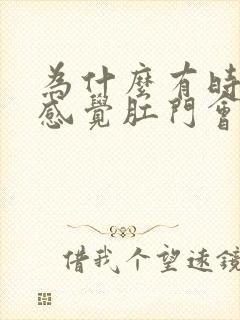 為什麼有時
感覺肛門會
借我个望遠鏡